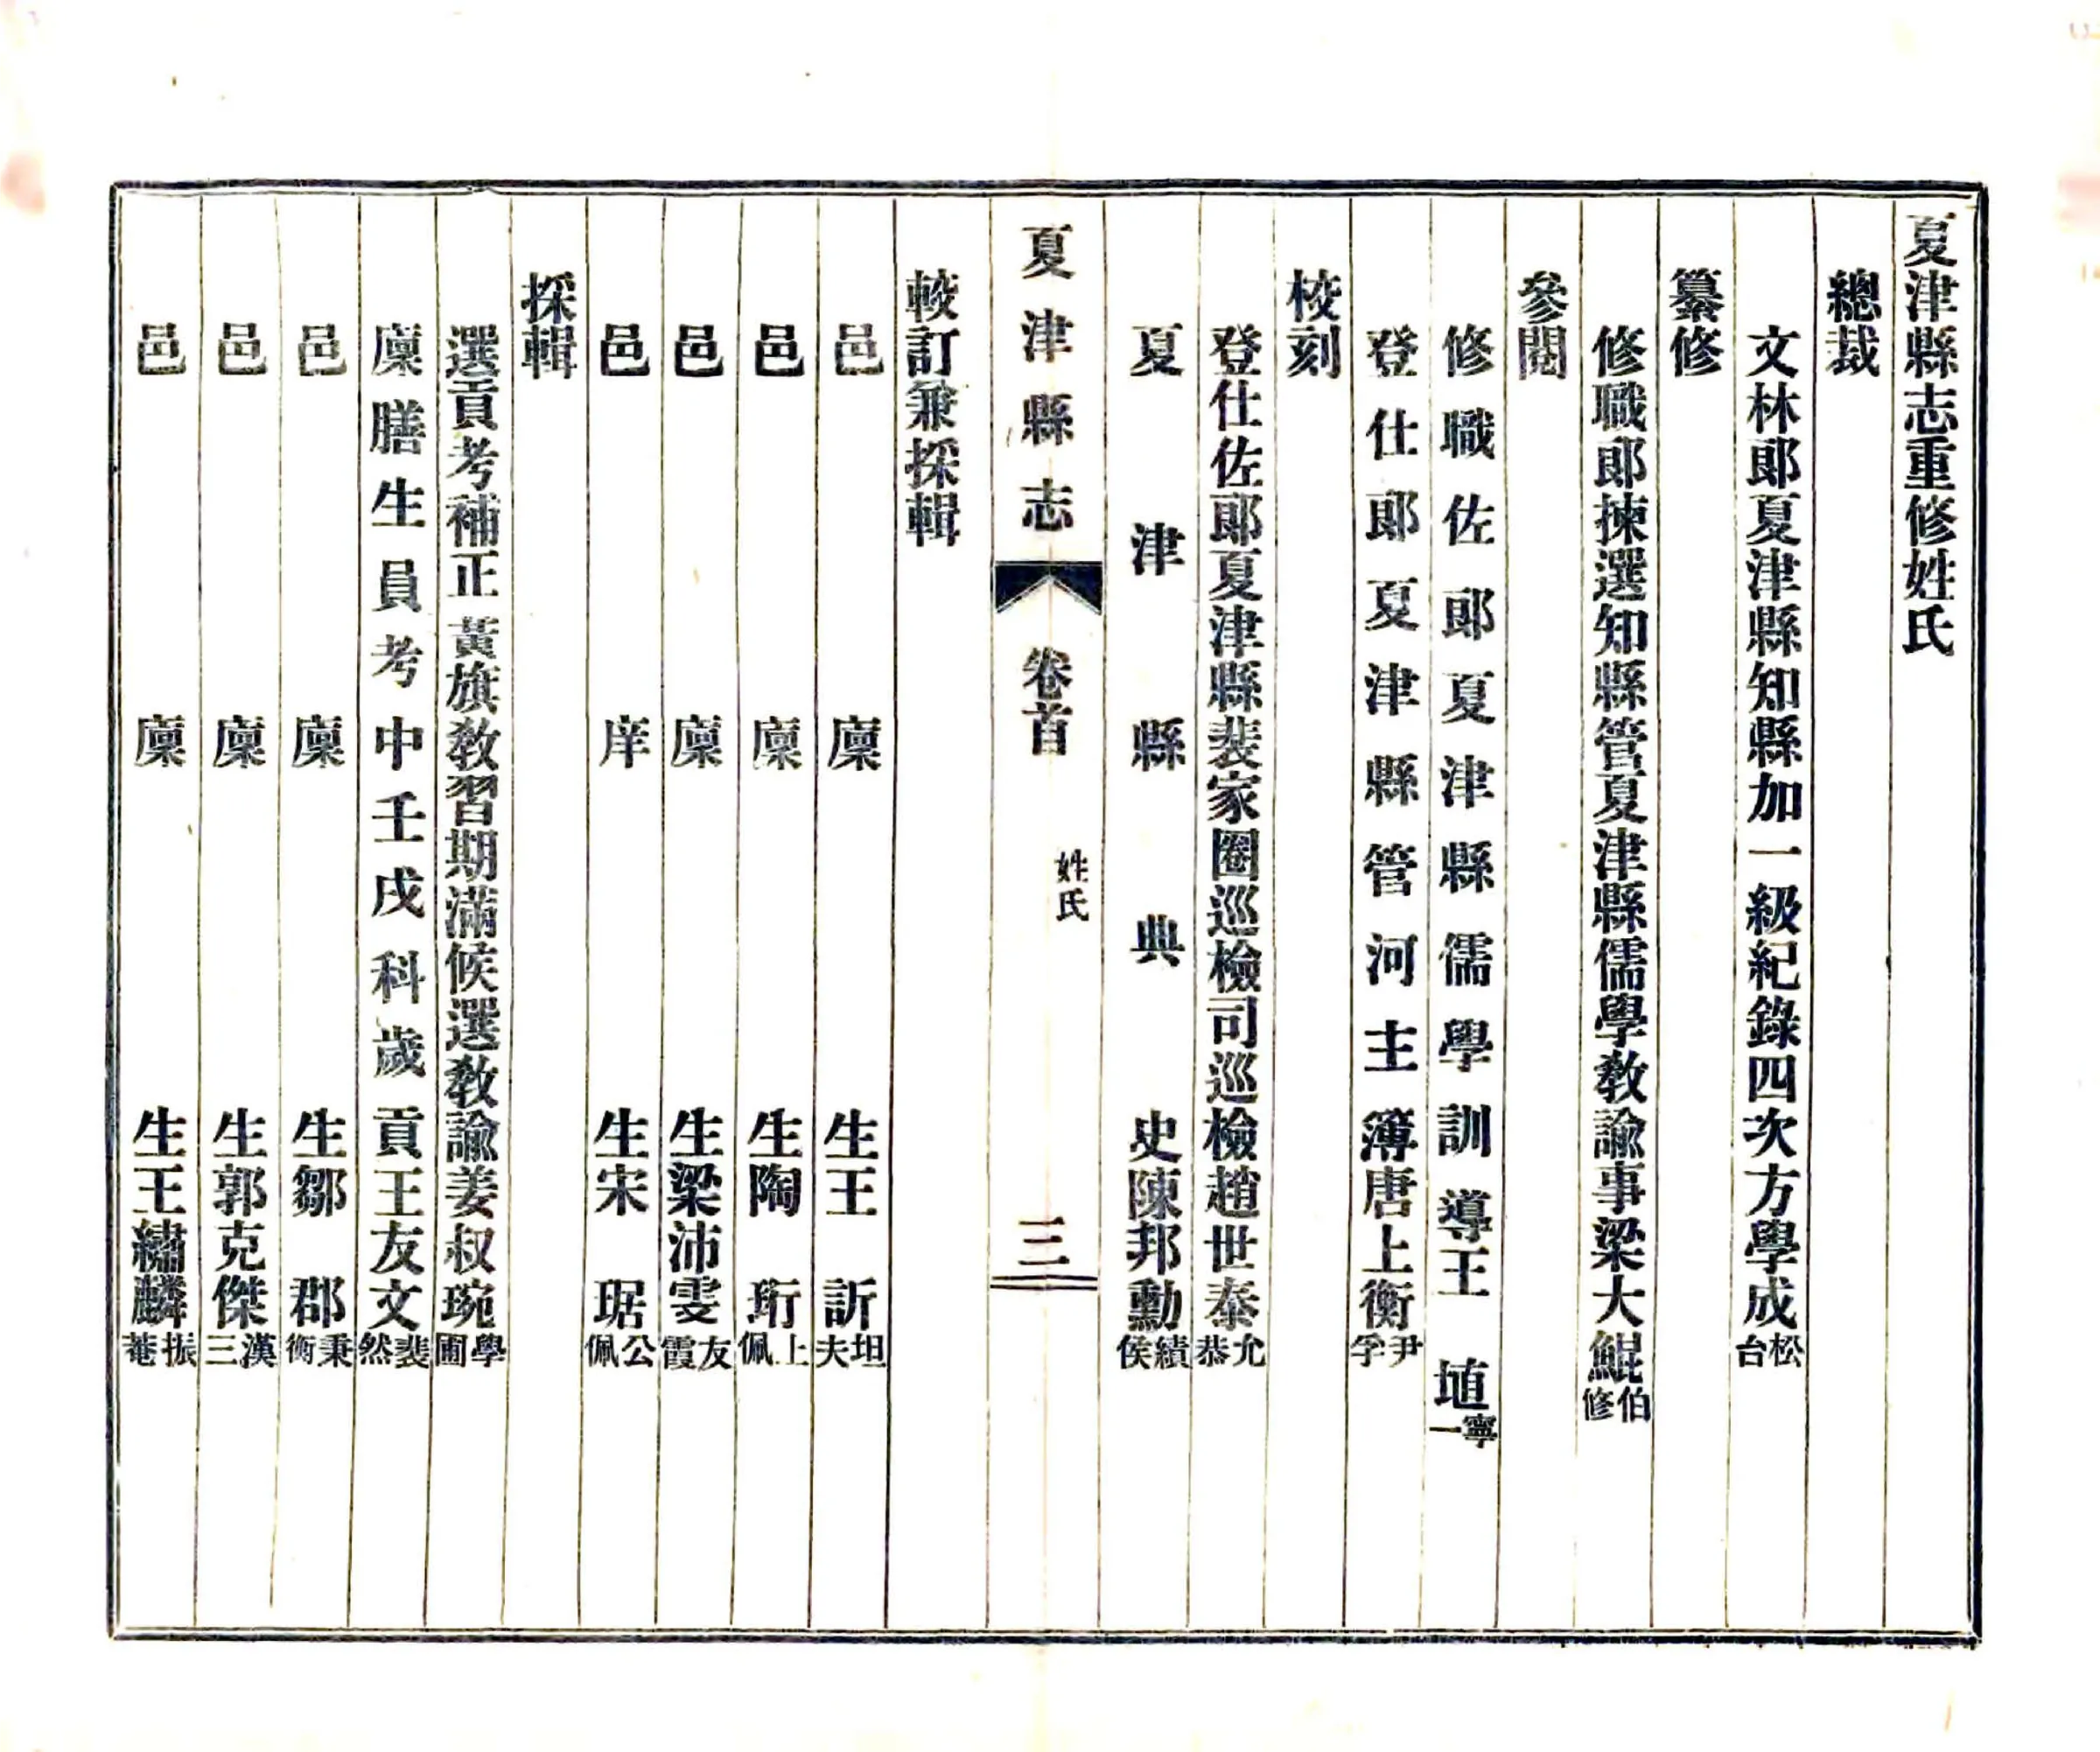 夏津縣志重修姓氏
總裁
文林郎夏津縣知縣加一級紀錄四次方學成松台
纂修
修職郎揀選知縣管夏津縣儒學教諭事梁大鯤伯修
參閱
修職佐郎夏津縣儒學訓導王埴寧一
登仕郎夏津縣管河主簿唐上衡尹孚
校刻
登仕佐郎夏津縣裴家圈巡檢司巡檢趙世泰允恭
夏津縣典史陳邦勳績侯
夏津縣志 卷首 姓氏 三
較訂兼採輯
邑廩生王訢坦夫
邑廩生陶珩上佩
邑廩生梁沛雯友霞
邑庠生宋琚公佩
採輯
選貢考補正黃旗教習期滿候選教諭姜叔琬學圃
廩膳生員考中壬戌科歲貢王友文裴然
邑廩生鄒郡秉衡
邑廩生郭克傑漢三
邑廩生王繡麟振菴